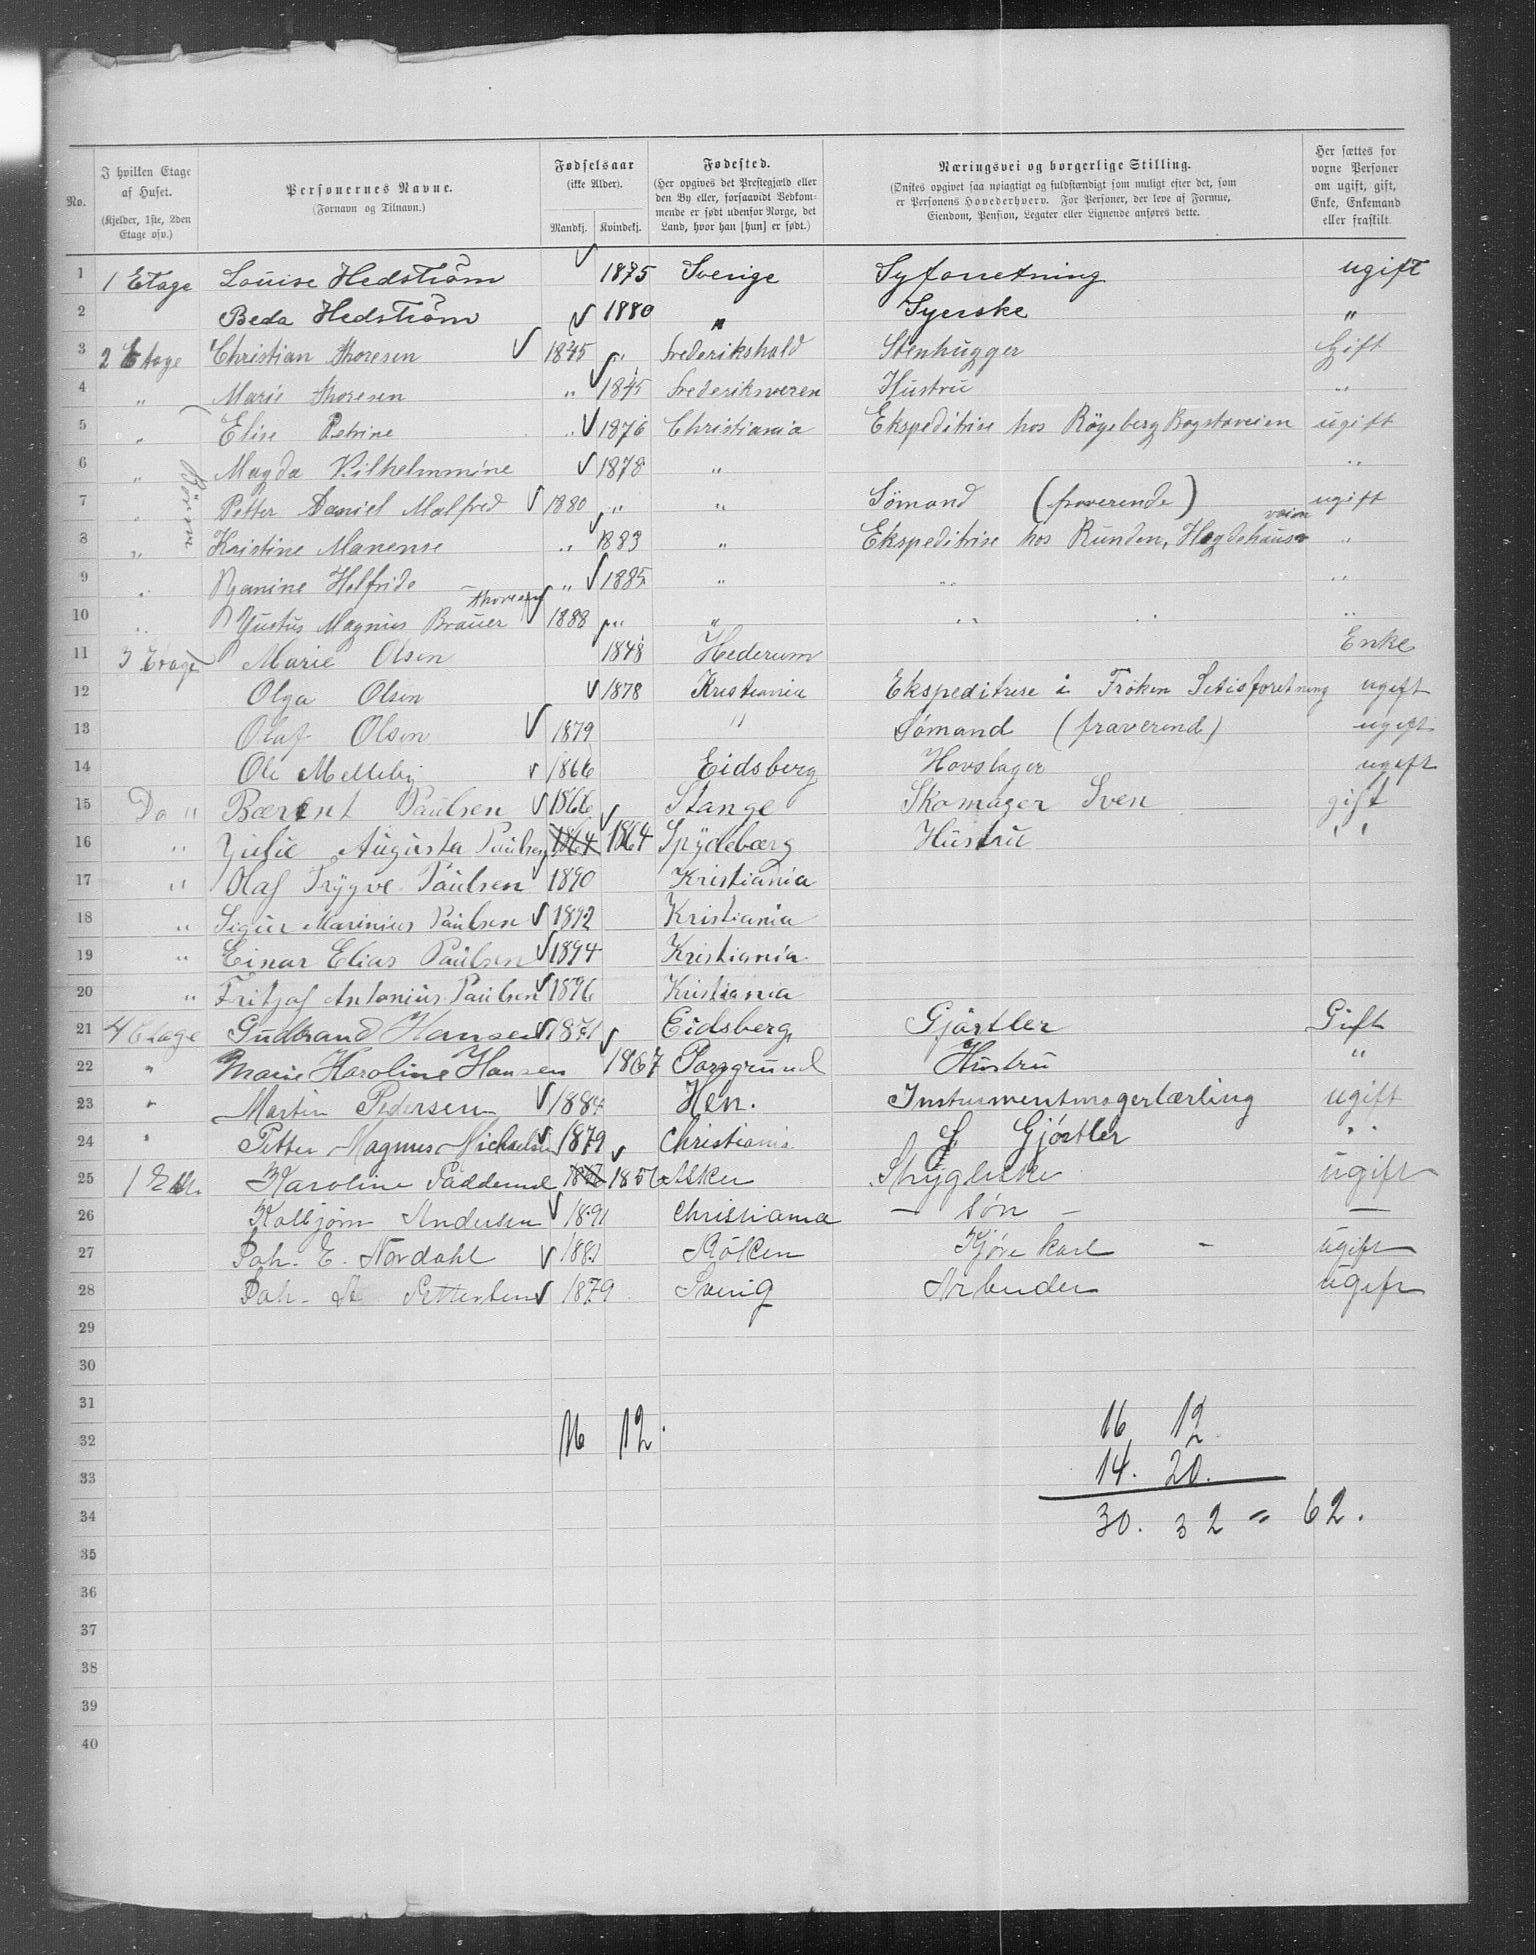 No. I hvilken Etage af Huset. (Kjelder, 1ste, 2den Etage osv.) Personernes Navne. (Fornavn og Tilnavn.) Fødselsaar (ikke Alder). Mandkj. Kvindekj. Fødested. (Her opgives det Prestegjæld eller den By eller, forsaavidt Vedkommende er født udenfor Norge, det Land, hvor han [hun] er født.) Næringsvei og borgerlige Stilling. (Ønskes opgivet saa nøiagtigt og fuldstændigt som muligt efter det, som er Personens Hovederhverv. For Personer, der leve af Formue, Eiendom, Pension, Legater eller Lignende anføres dette. Her sættes for voxne Personer om ugift, gift, Enke, Enkemand eller fraskilt.
1 1 Etage Louise Hedström 1875 Sverige Syforretning ugift
2 Beda Hedström 1880 " Syerske "
3 2 Etage Christian Thoresen 1845 " Frederikshald Stenhugger Gift
4 " Marie Thoresen " 1845 Frederiksværen Hustru "
5 " Elise Petrine " 1876 Christiania Ekspeditrise hos Rögeberg Bogstaveien ugift
6 " Magda Vilhelmmine 1878 " "
Börn
7 " Petter Daniel Malfred 1880 " " Sömand (fraverende) ugift
8 " Kristine Manense " 1883 " Ekspeditrise hos Runden, Hegdehaus veien "
9 " Ranine Helfride " 1885 " " "
10 " Justus Magnus Brauer Thoresen 1888 " " " "
11 3 Etage Marie Olsen 1848 Hederum Enke
12 Olga Olsen 1878 Kristiania Ekspeditrise i Fröken forretning ugift
13 Olaf Olsen 1879 " Sömand (fraverend) ugift
14 Ole Melleby 1866 Eidsberg Hovslager ugift
15 Do " Bærent Paulsen 1866 Stange Skomager Sven gift
16 " Julie Augusta Paulsen 1864 1864 Spydebærg Hustru "
17 " Olaf Trygve Paulsen 1890 Kristiania
18 " Sigur Marinius Paulsen 1892 Kristiania
19 " Einar Elias Paulsen 1894 Kristiania
20 " Fritjof Antonius Paulsen 1896 Kristiania
21 4 Etage Gudbrand Hansen 1871 Eidsberg Gjørtler Gift
22 " Marie Karoline Hansen 1867 Porsgrund Hustru "
23 " Martin Pedersen 1884 Hen. Instrumentmagerlærling ugift
24 " Petter Magnus Michaelsen 1879 Christiania Gjörtler "
25 1 Karoline Padderud 1856 Asker Strygerske ugift
26 Kolbjørn Andersen 1891 Christiania — Søn — —
27 Joh. E. Nordahl 1881 Röken Kjöre karl - ugift
28 Joh. Pettersen 1879 Sverig Arbeider ugift
29
30
31
32 16 12. 16 12
33 14. 20.
34 30. 32 = 62.
35
36
37
38
39
40